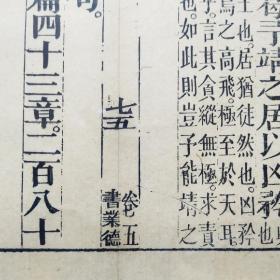 予靖之居以凶矜
王也。居猶徒然也。凶矜
鳥之高飛。極至於天耳
乎。言其貪縱無極。求責
也。如此則豈予能靖之
卷五
書業德
七五
句。
篇四十三章。二百八十